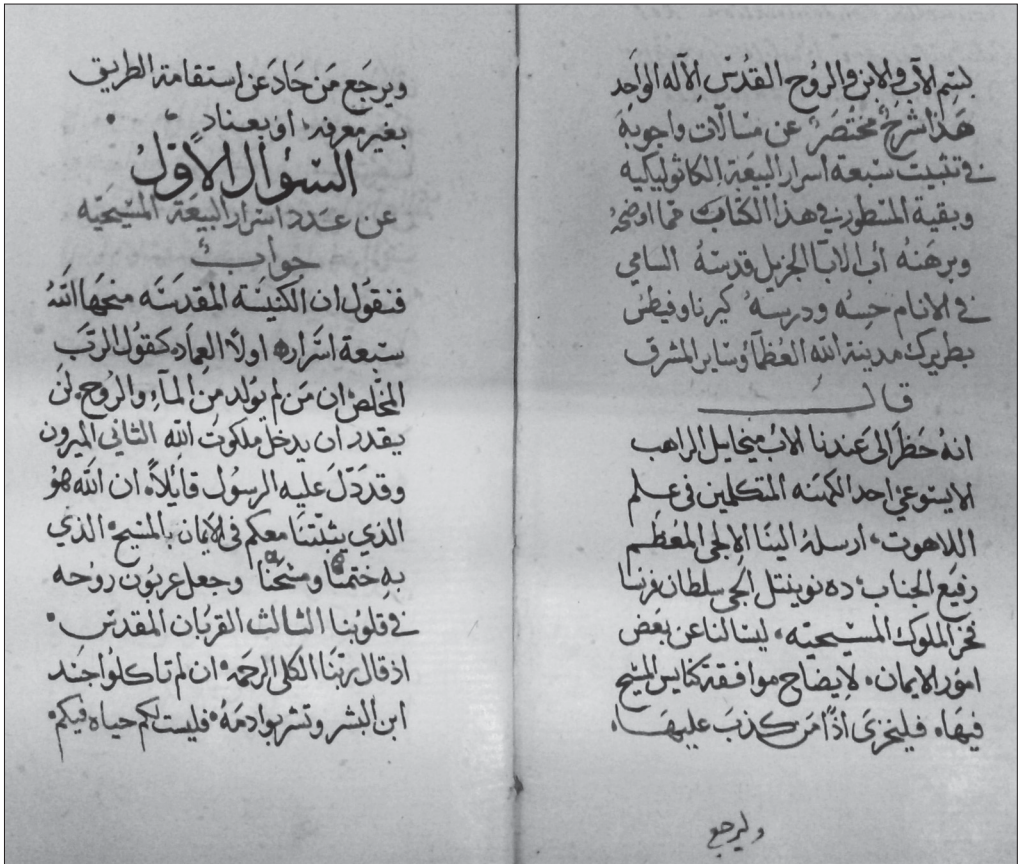 بسم الآب والابن والروح القدس الآله الواحد
هذا شرحٌ مختصرٌ عن مسالات واجوبة
في تثبيت سبعة اسرار البيعة الكاثوليكيه
وبقية المسطور في هذا الكتاب مما اوضحهُ
وبرهنهُ أب الابآ الجزيل قدسهُ السامي
في الانام حسبه ودرسهُ كير ناوفيطس
بطريرك مدينة الله العظمآ وساير المشرق
قال
انهُ حظر الى عندنا الاب ميخايل الراهب
الايسوعي احد الكهنه المتكلمين في علم
اللاهوت، ارسلهُ الينا الالجي المعظم
رفيع الجناب ده نوينتل الجي سلطان فرنسا
فخر الملوك المسيحيه، ليسالنا عن بعض
امور الايمان، لايضاح موافقة كنايس المسيح
فيها، فليخزى اذًا من كذب عليها،
وليرجع
ويرجع من حاد عن استقامة الطريق
بغير معرفه، او بعناد
السؤال الاول
عن عدد اسرار البيعة المسيحيه
جواب
فنقول ان الكنيسة المقدسه منحها اللهُ
سبعة اسرار، اولاً العماد، كقول الرب
المخلص، ان من لم يولد من المآء والروح، لن
يقدر ان يدخل ملكوت الله الثاني الميرون
وقد دل عليه الرسول قايلاً، ان الله هو
الذي يثبتنا معكم في الايمان بالمسيح، الذي
به ختمنا ومسحنا وجعل عربون روحه
في قلوبنا الثالث القربان المقدس،
اذ قال ربنا الكلي الرحمة، ان لم تاكلوا جسد
ابن البشر وتشربوا دمهُ، فليست لكم حياه فيكم،